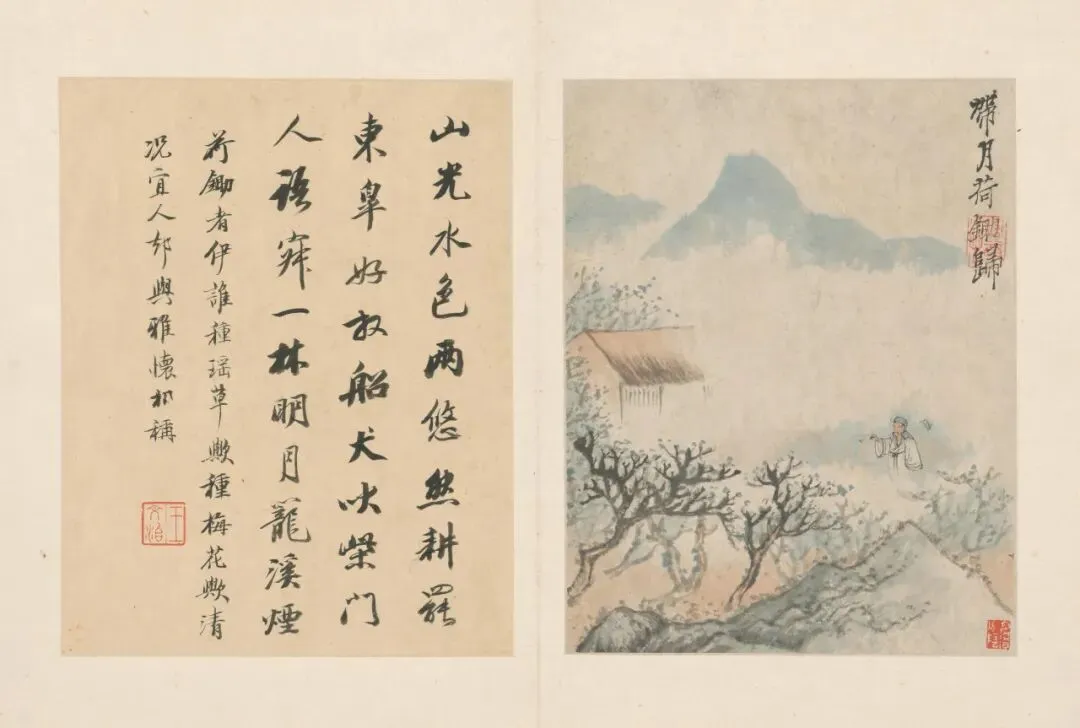 帶月荷鋤歸
山光水色兩悠然耕罷
東皋好放船犬吠柴門
人語寂一林明月籠溪煙
荷鋤者伊誰種瑶草歟種梅花歟清
況宜人却與雅懷相稱
王文治